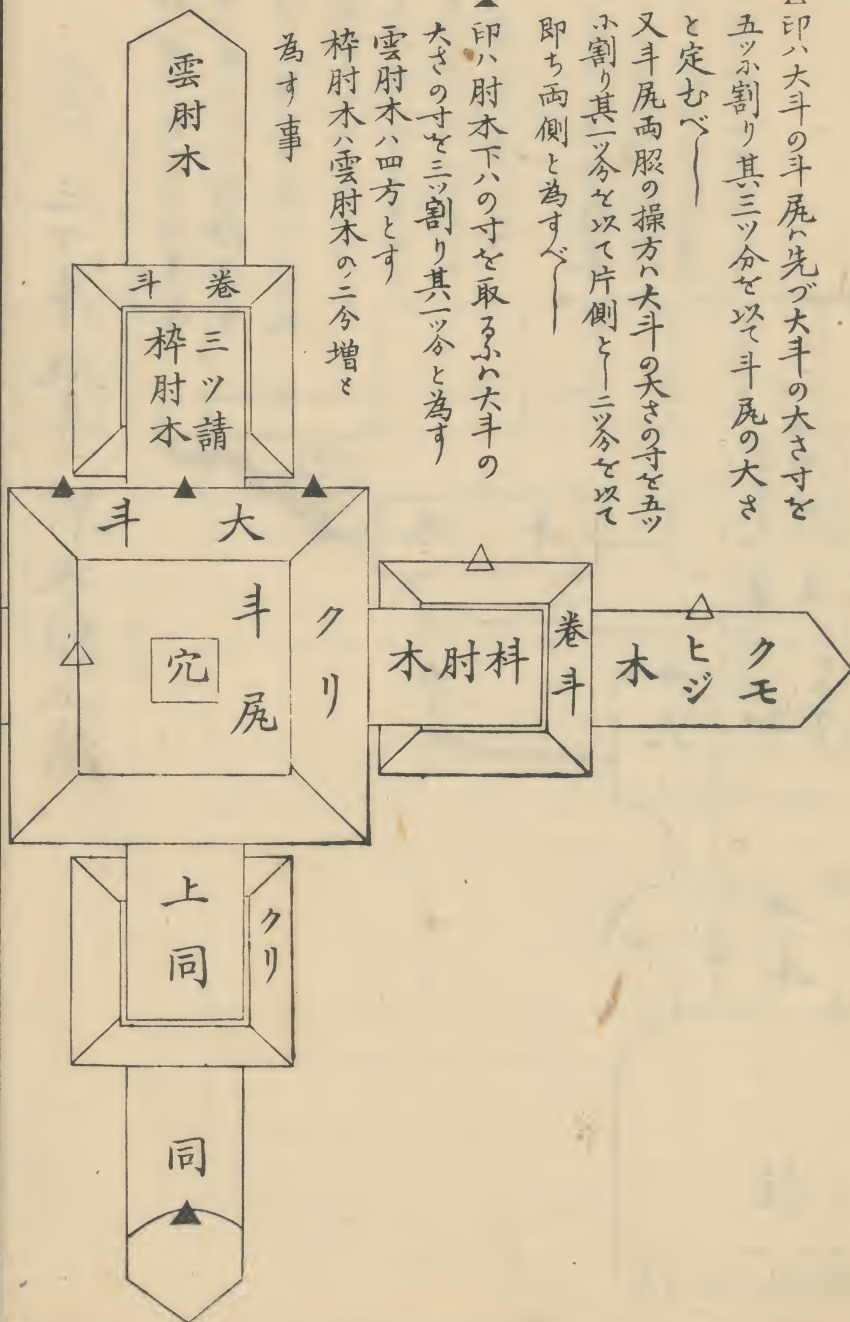 △印ハ大斗の斗尻ハ先づ大斗の大さ寸を
五ツニ割り其三ツ分を以て斗尻の大さ
と定むべし
又斗尻両脇の操方ハ大斗の大さの寸を五ツ
ニ割り其一ツ分を以て片側とし二ツ分を以て
即ち両側と為すべし
▲印ハ肘木下ハの寸を取るにハ大斗の
大さの寸を三ツ割り其一ツ分と為す
雲肘木ハ四方とす
枠肘木ハ雲肘木の二分増と
為す事
雲肘木
巻斗
三ツ請
枠肘木
大斗
クリ
斗尻
穴
枓肘木
巻斗
クモ
ヒジ
木
上同
クリ
同